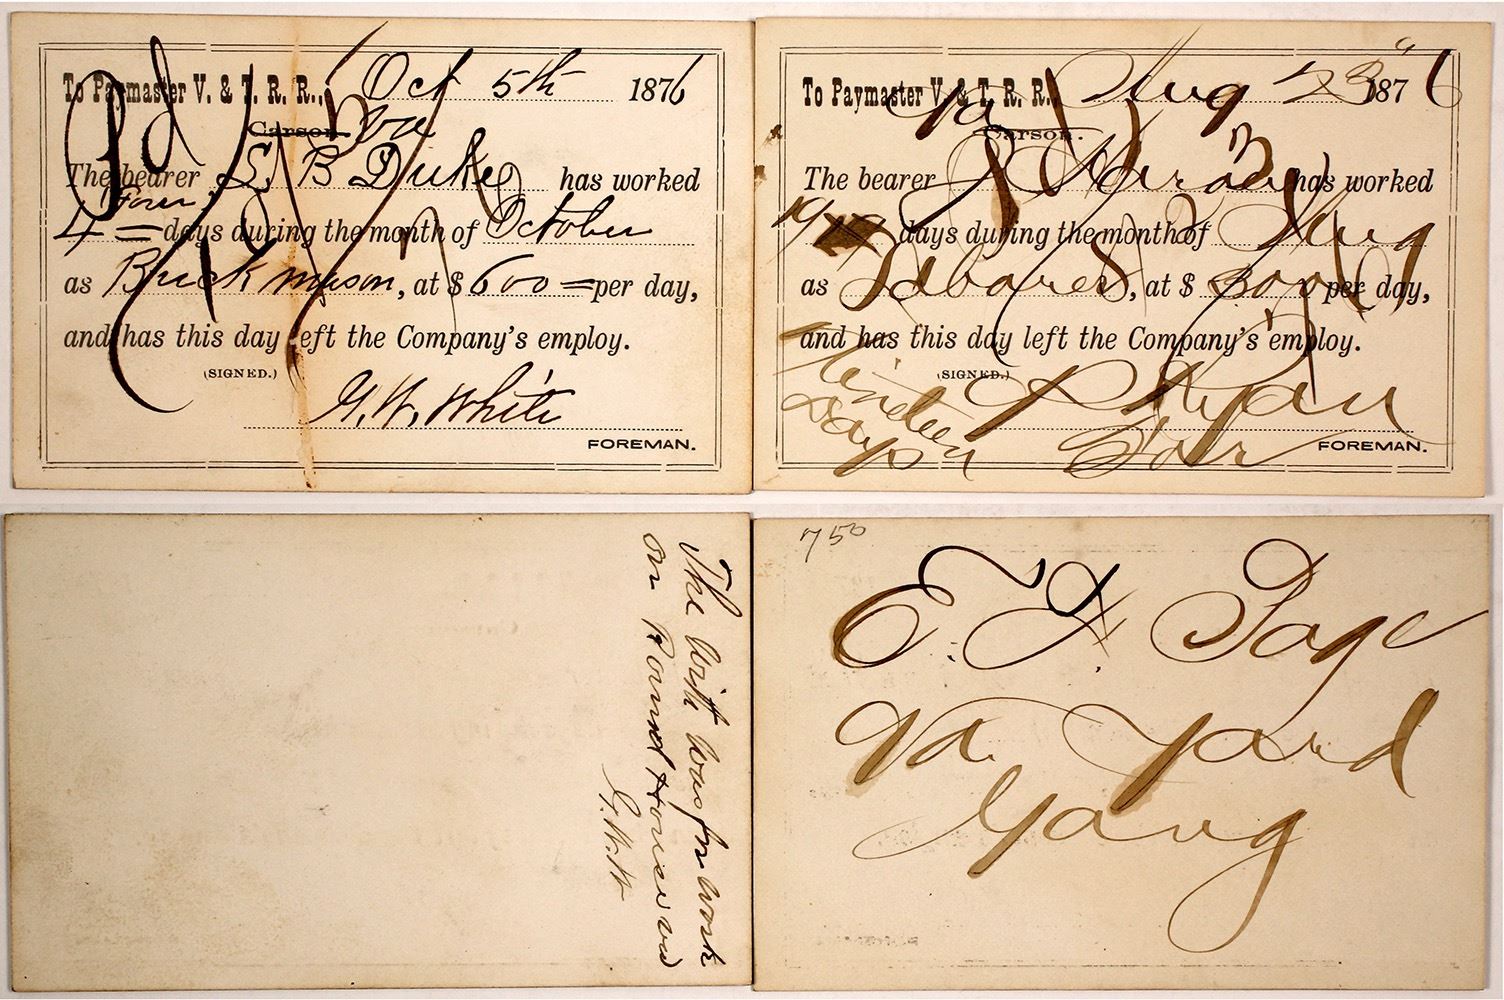 To Paymaster V. & T. R. R., Oct 5th 1876
Pd
Carson. Va
The bearer S. B Duke has worked
Four
4 = days during the month of October
as Brick mason, at $ 600 = per day,
and has this day left the Company's employ.
(SIGNED.)
G. W. White
FOREMAN.
To Paymaster V. & T. R. R., Aug 23 1876
Va
Carson.
The bearer J has worked
19 days during the month of Aug
as Laborer, at $ 300 per day,
and has this day left the Company's employ.
Ninteen
Days
(SIGNED.)
P Ryan
For
FOREMAN.
The with was for work
on Round House in va
G.W.W
750
E. F. Page
Va. Yard
Gang